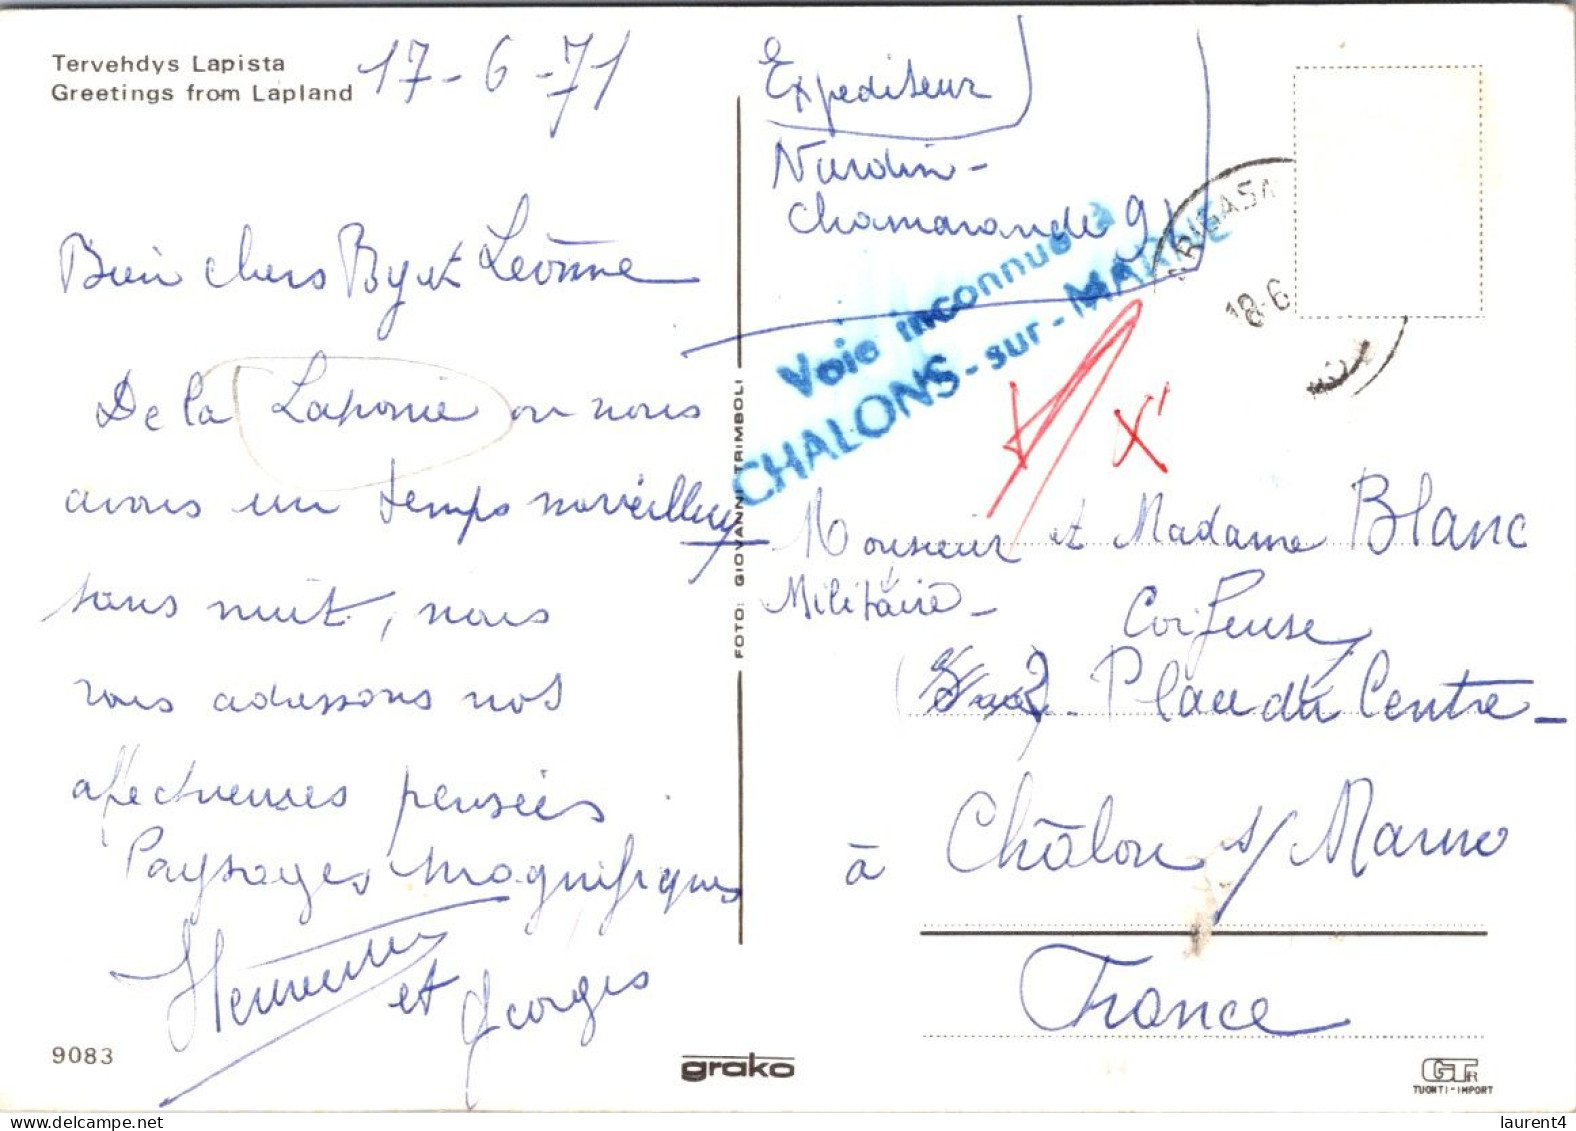 Tervehdys Lapista
Greetings from Lapland
17-6-71
Bien chers By et Léonne
De la Laponie ou nous
avons un temps merveilleux
sans nuit, nous
vous adressons nos
afectueuses pensées
Paysages magnifiques
et Georges
9083
FOTO: GIOVANNI TRIMBOLI
grako
Expediteur
Nardin-
Chamarande 91
Voie inconnue à
CHALONS-sur-MARNE
RIGASN
18-6
X
Monsieur et Madame Blanc
Militaire-
Coifeuse
Place du Centre-
à Châlon s/Marne
France
GTR
TUONTI-IMPORT
laurent4